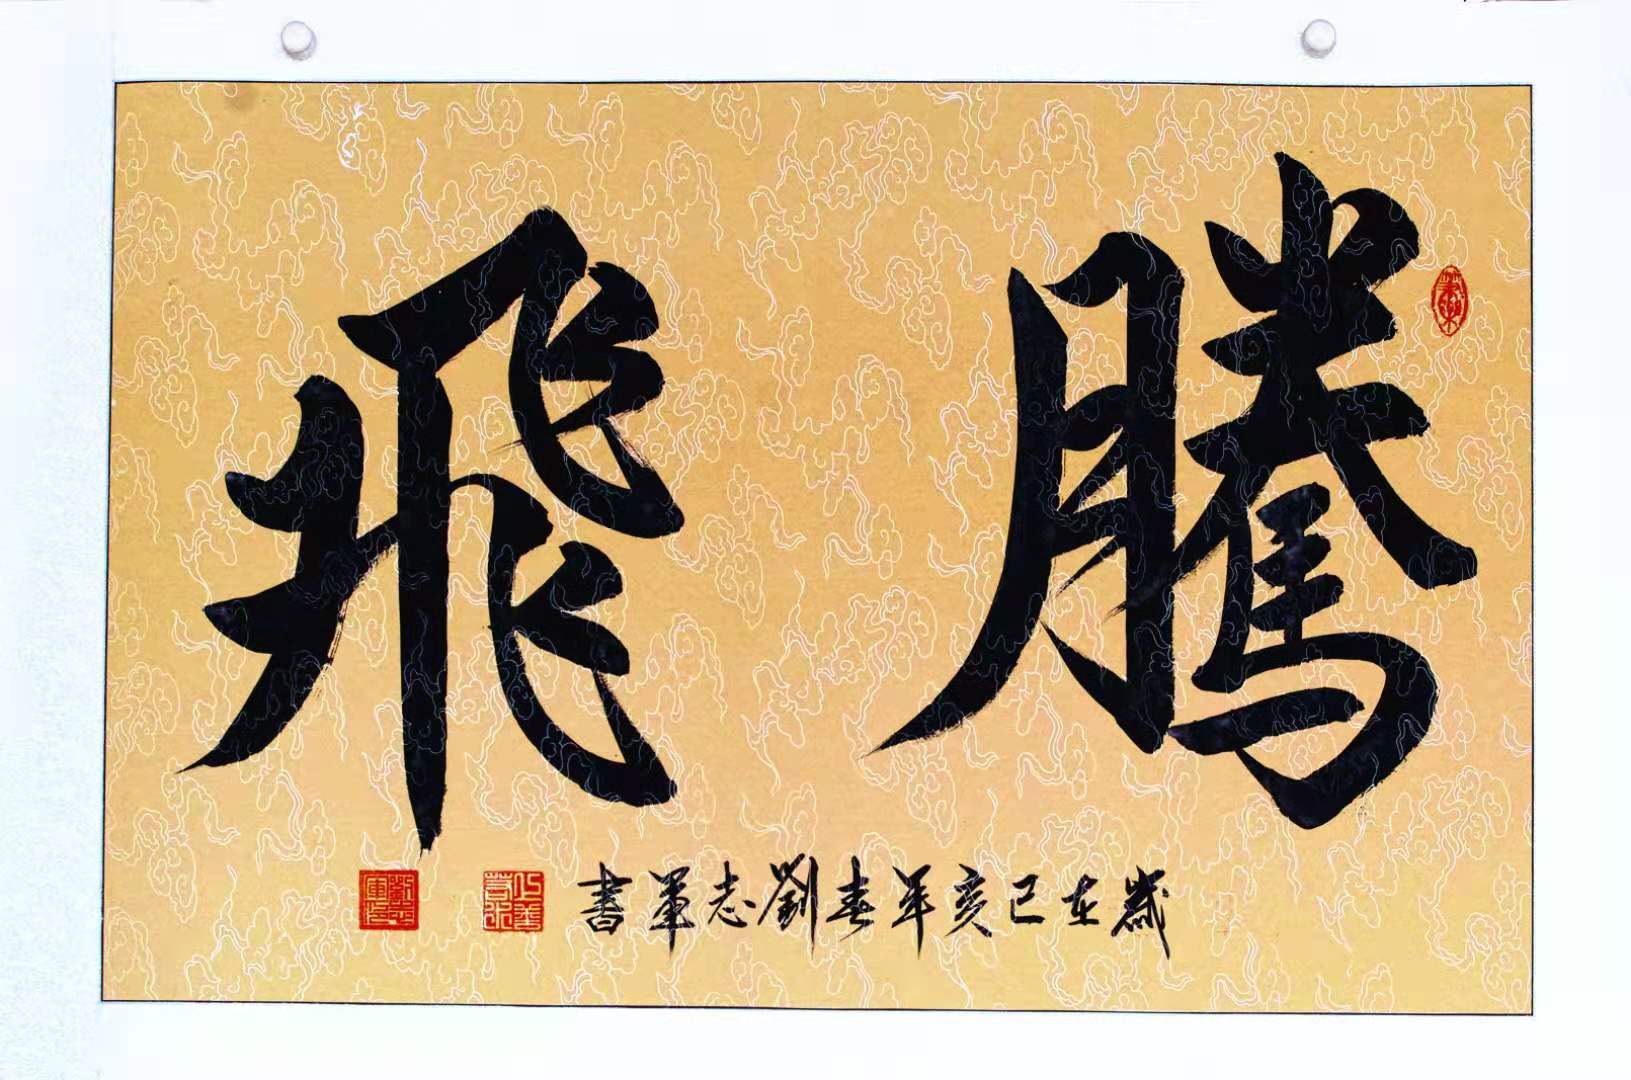 騰飛
歲在己亥年春劉志軍書